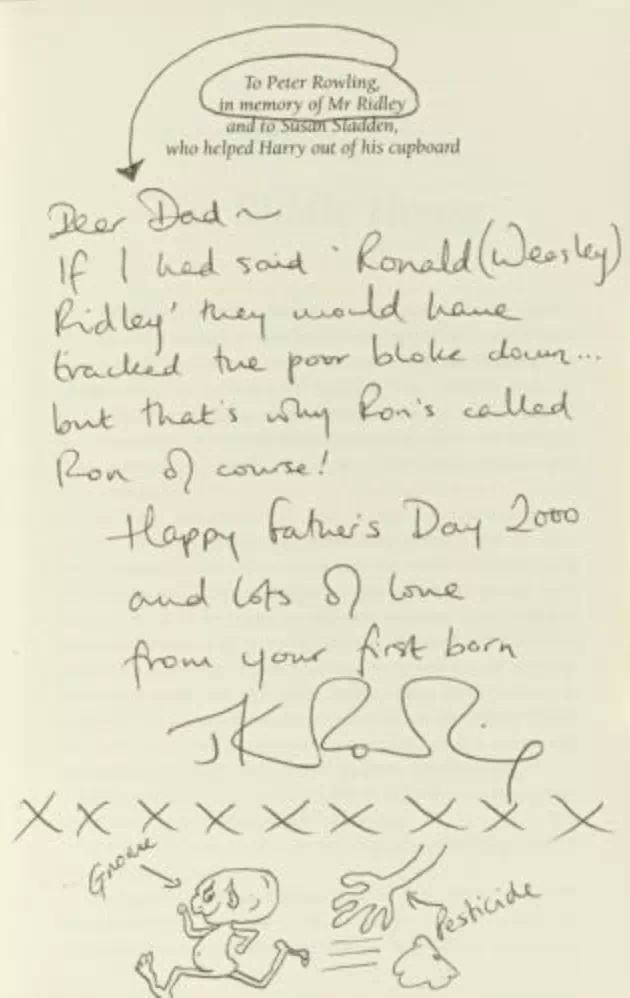 To Peter Rowling,
in memory of Mr Ridley
and to Susan Sladden,
who helped Harry out of his cupboard
Dear Dad ~
If I had said 'Ronald (Weasley)
Ridley' they would have
tracked the poor bloke down...
but that's why Ron's called
Ron of course!
Happy Father's Day 2000
and lots of love
from your first born
JK Rowling
X X X X X X X X X
Gnome
Pesticide